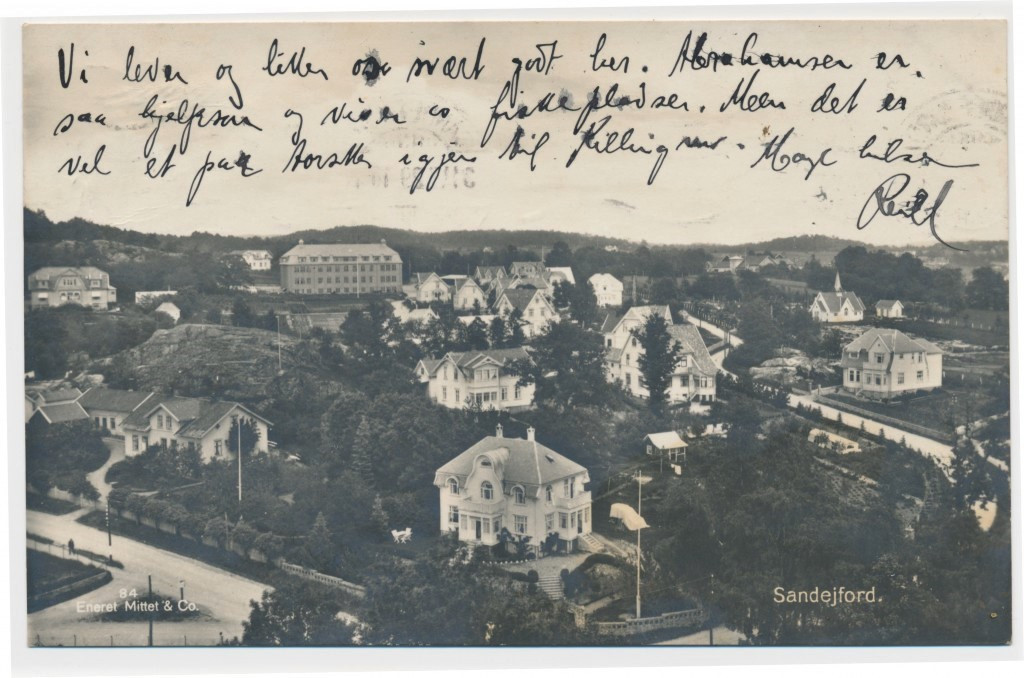 Vi lever og litter oss svært godt her. Abrahamsen er
saa hjelpsom og viser os fiskepladser. Men det er
vel et par torsker igjen til Killingen. Mange hilsen
84
Eneret Mittet & Co.
Sandejford.